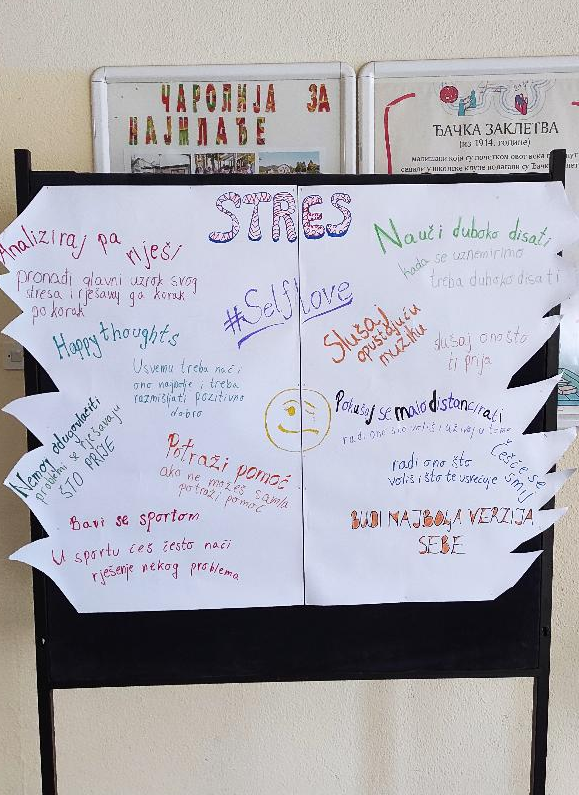 ЧАРОЛИЈА ЗА
НАЈМЛАЂЕ
ЂАЧКА ЗАКЛЕТВА
(из 1914. године)
STRES
#Selflove
Analiziraj pa
riješi
pronađi glavni uzrok svog
stresa i rješavaj ga korak
po korak
Happy thoughts
U svemu treba naći
ono najbolje i treba
razmišljati pozitivno
dobro
Nemoj odugovlačiti
problemi se rješavaju
ŠTO PRIJE
Potraži pomoć
ako ne možeš sam/a
potraži pomoć
Bavi se sportom
U sportu ćeš često naći
rješenje nekog problema
Nauči duboko disati
kada se uznemirimo
treba duboko disati
Slušaj
opuštajuću
muziku
slušaj ono što
ti prija
Pokušaj se malo distancirati
radi ono što voliš i uživaj u tome
radi ono što
voliš i što te usrećuje
Češće se
smij
BUDI NAJBOLJA VERZIJA
SEBE